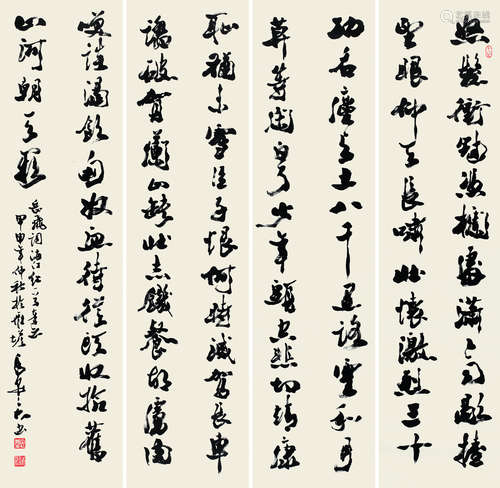 怒髮衝冠憑欄處瀟々雨歇抬
望眼仰天長嘯壯懷激烈三十
功名塵與土八千里路雲和月
莫等閒白了少年頭空悲切靖康
恥猶未雪臣子恨何時滅駕長車
踏破賀蘭山缺壯志饑餐胡虜肉
笑談渴飲匈奴血待從頭收拾舊
山河朝天闕
岳飛詞滿江紅
甲申年仲秋於
書